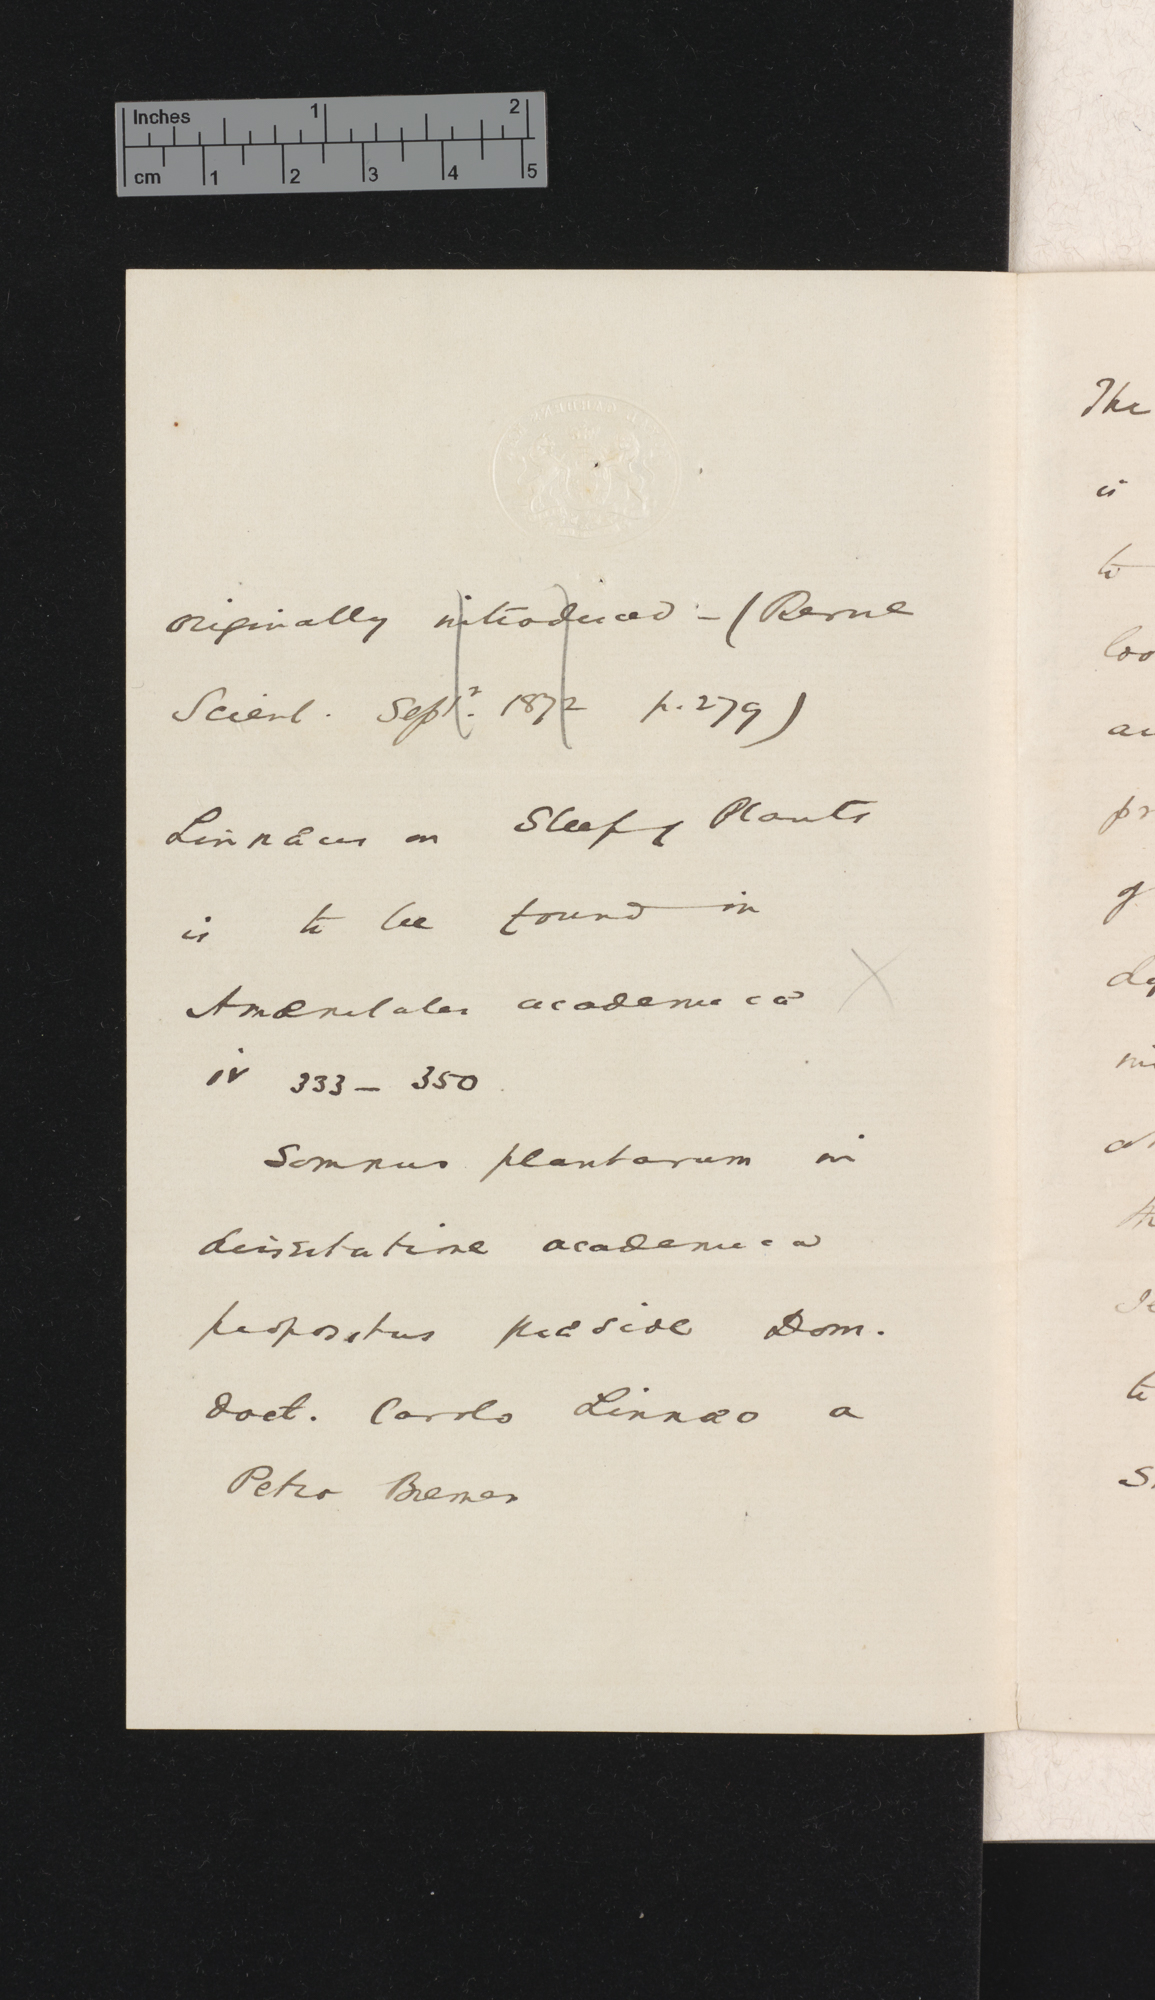 Inches 1 2
cm 1 2 3 4 5
originally introduced – (Revue
Scient. Sept. 1872 p. 279)
Linnæus on Sleep of Plants
is to be found in
Amœnitates academicæ
iv 333 – 350
Somnus plantarum in
dissertatione academica
propositus præside Dom.
Doct. Carolo Linnæo a
Petro Bremer
The
is
to
loo
pr
of